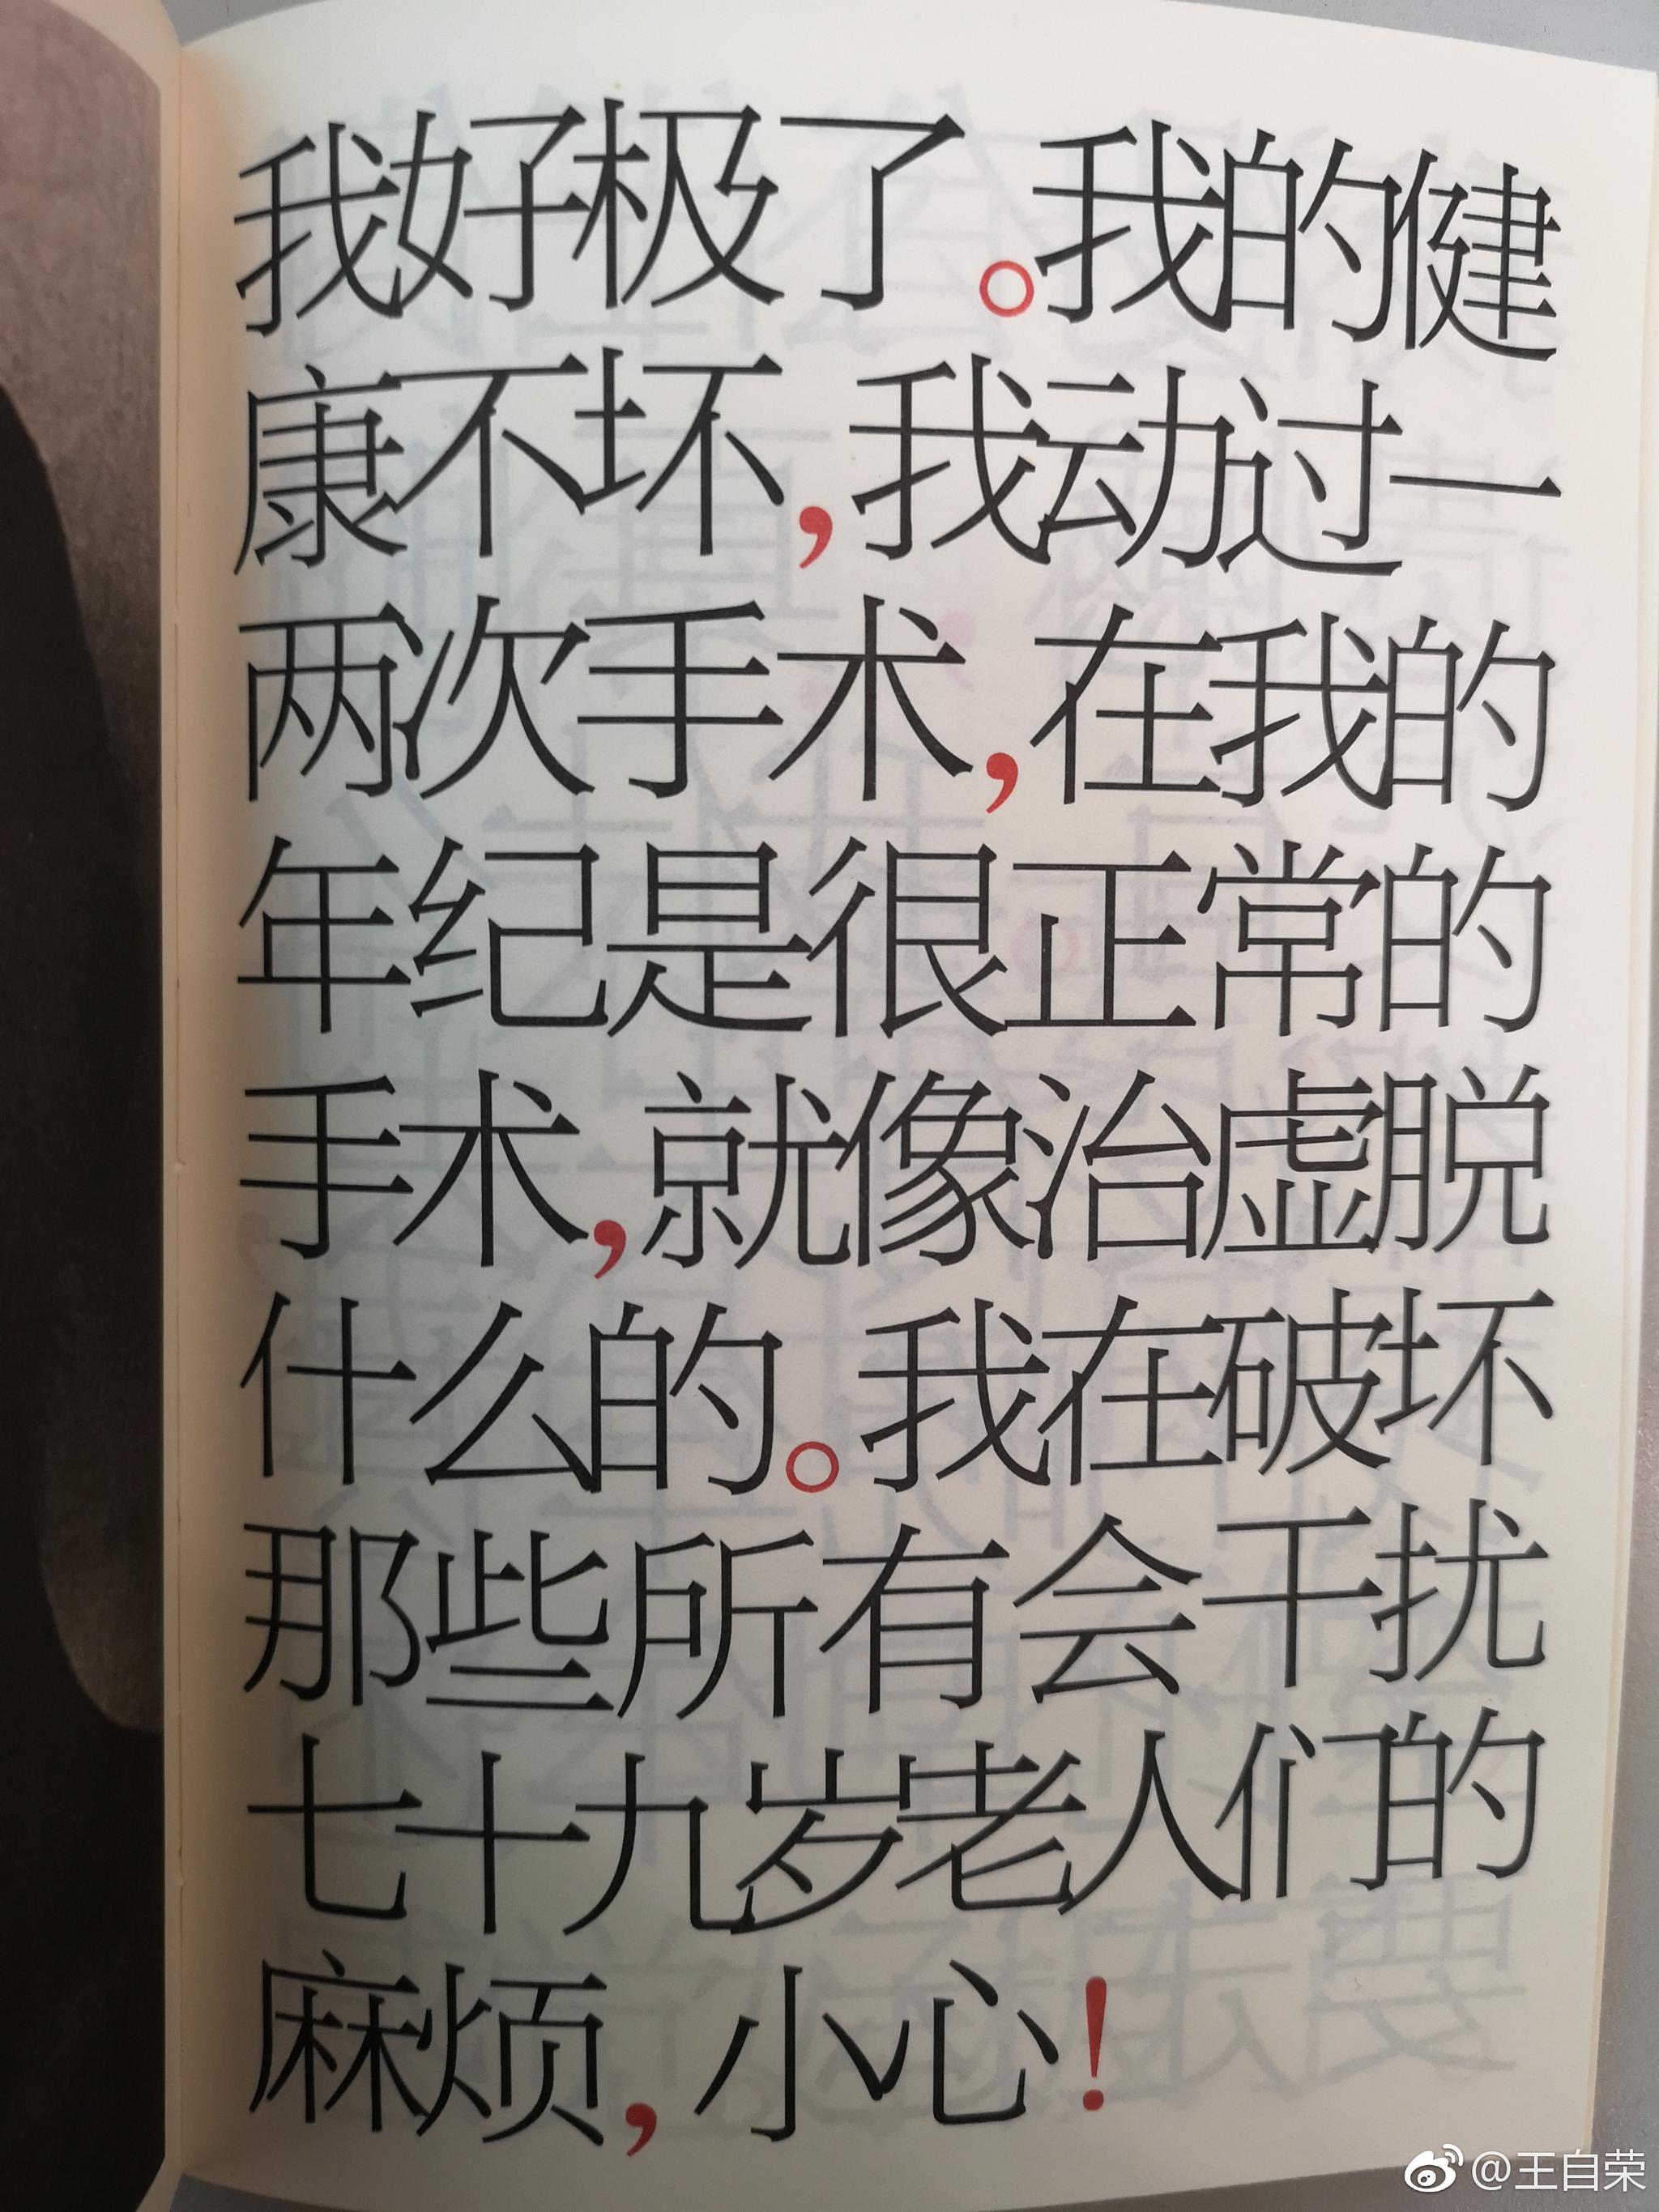 我好极了。我的健
康不坏，我动过一
两次手术，在我的
年纪是很正常的
手术，就像治虚脱
什么的。我在破坏
那些所有会干扰
七十九岁老人们的
麻烦，小心！
@王自荣